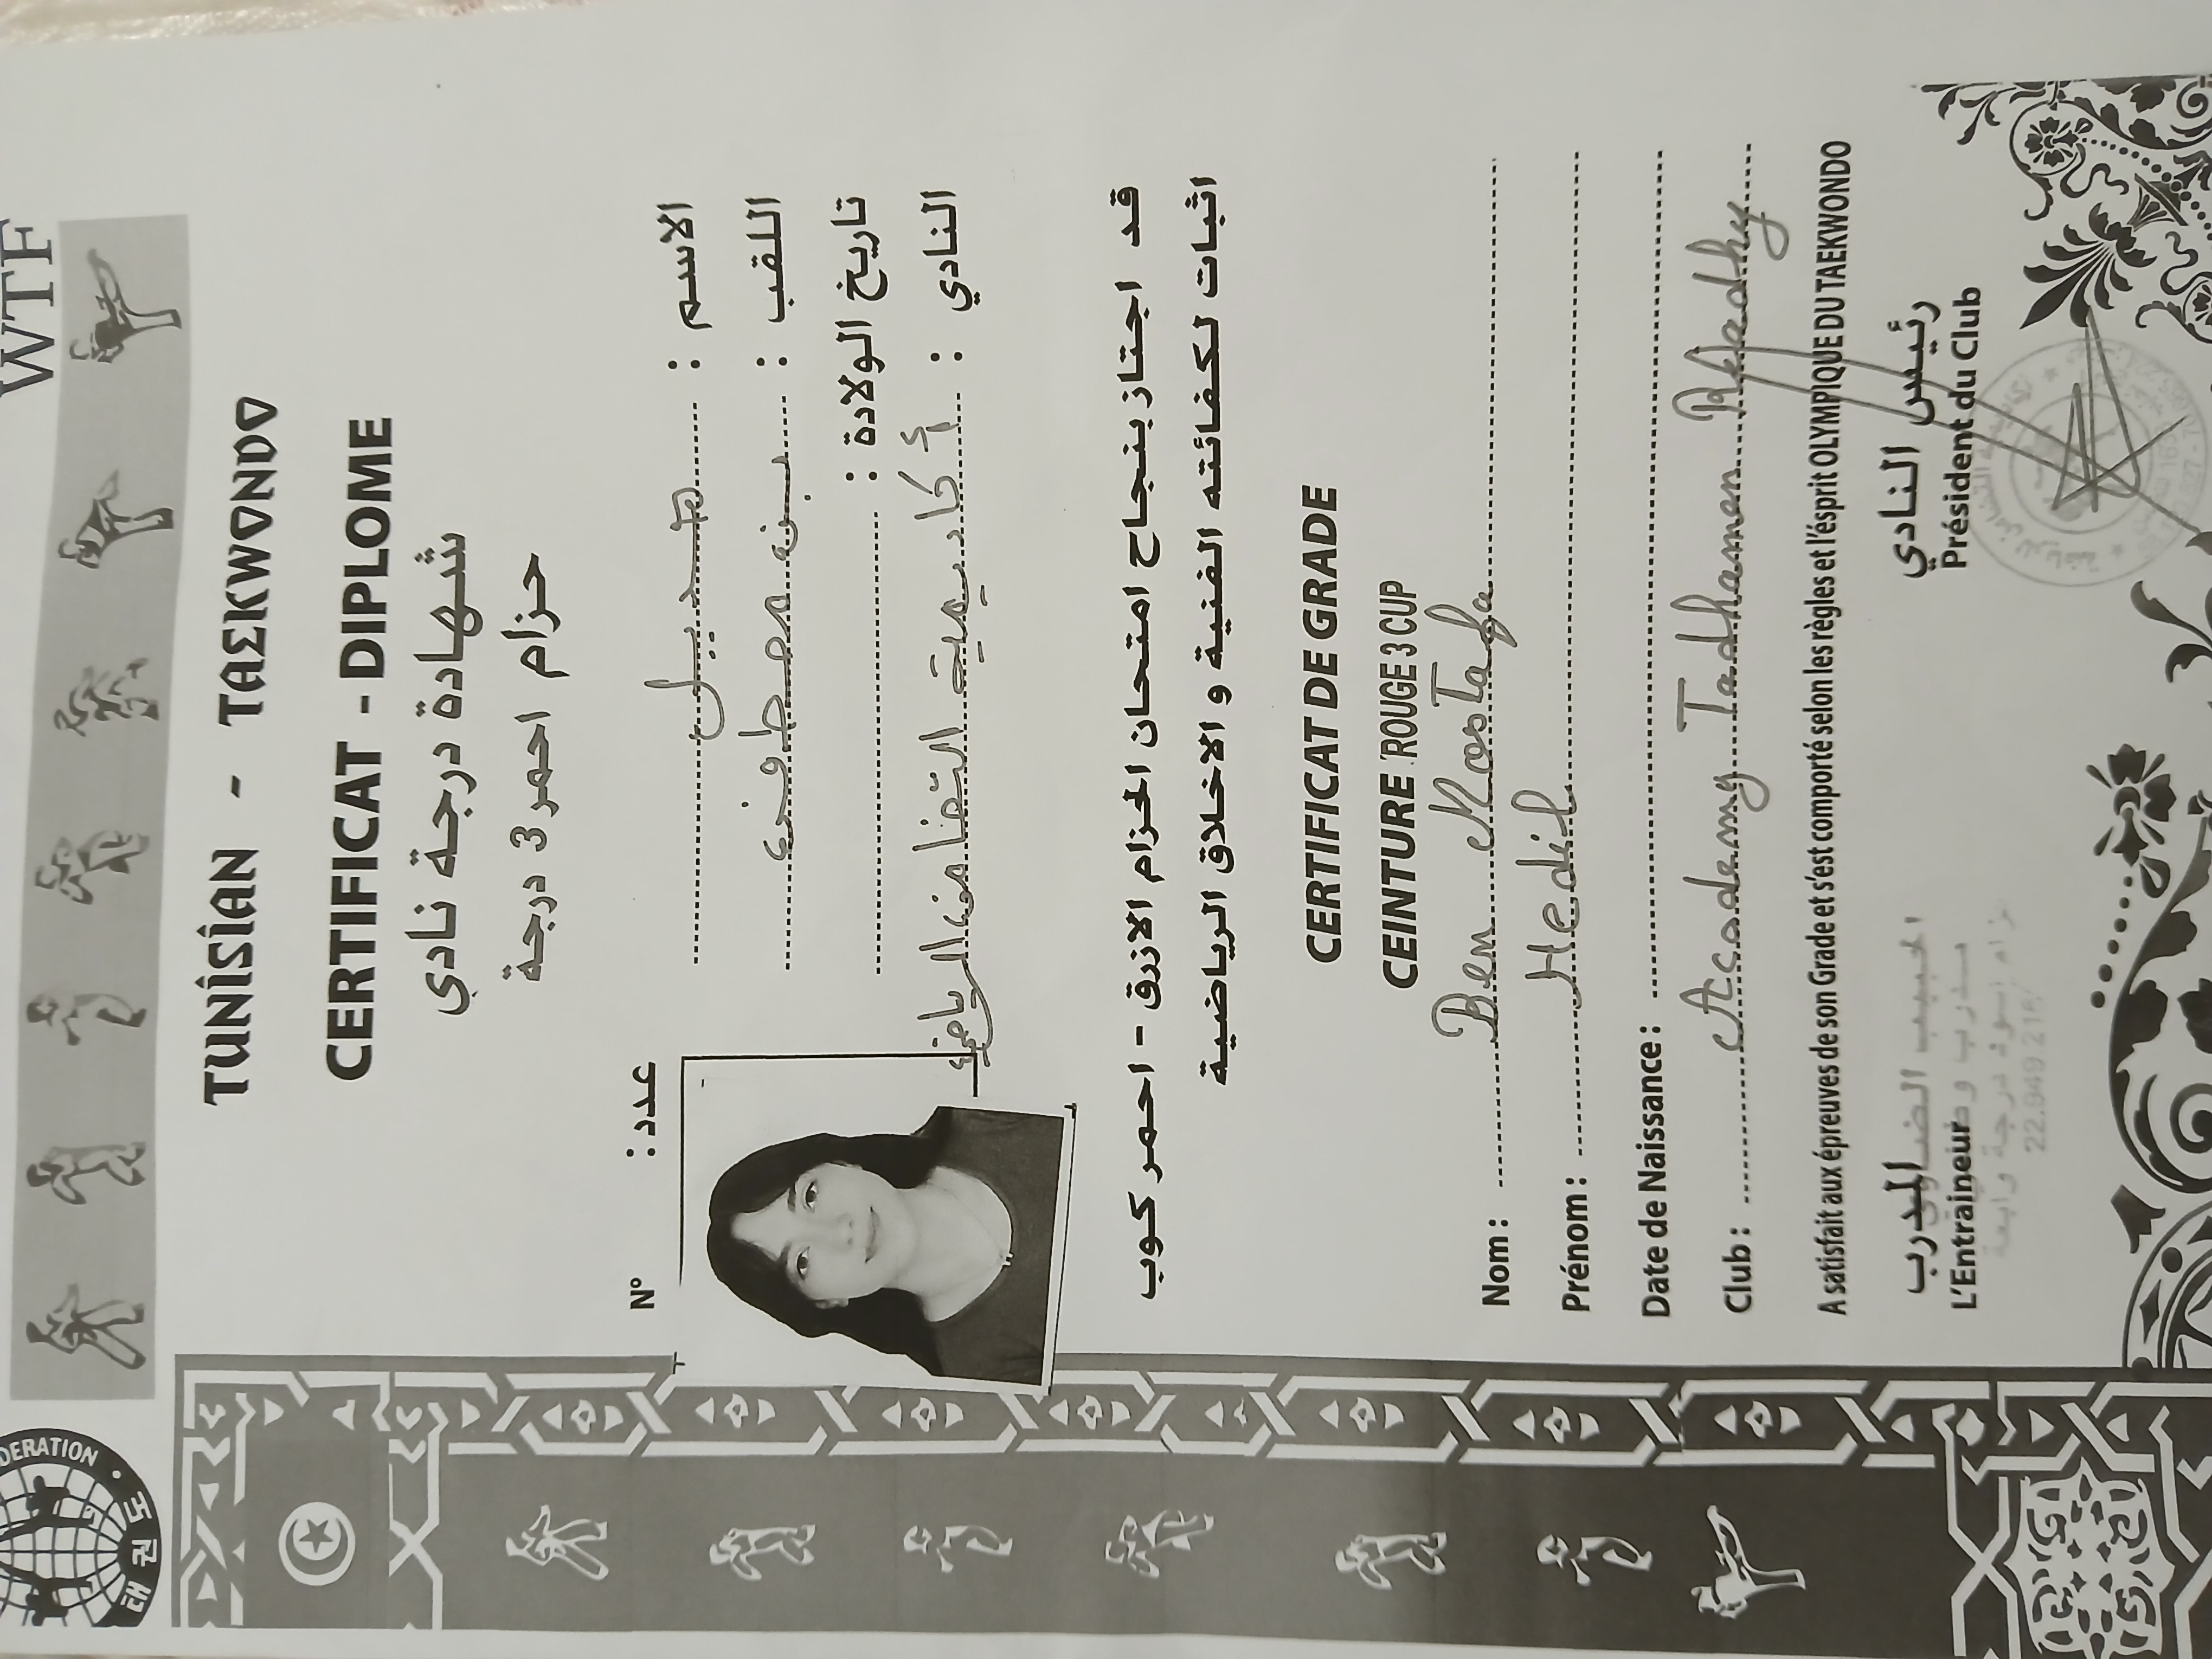 WTF
DERATION
태권도
TUNISIAN - TAEKWONDO
CERTIFICAT - DIPLOME
شهادة درجة نادي
حزام احمر 3 درجة
N° عدد :
الاسم : هديل
اللقب : بن مصطفى
تاريخ الولادة :
النادي : أكاديمية التضامن الرياضي
قد اجتاز بنجاح امتحان الحزام الازرق - احمر كوب
اثبات لكفائته الفنية و الاخلاق الرياضية
CERTIFICAT DE GRADE
CEINTURE ROUGE 3 CUP
Nom : Ben Mostafa
Prénom : Hedil
Date de Naissance :
Club : Academy Tadhamen Riadhy
A satisfait aux épreuves de son Grade et s'est comporté selon les règles et l'ésprit OLYMPIQUE DU TAEKWONDO
المدرب رئيس النادي
L'Entraineur Président du Club
الحبيب
مدرب وطني
درجة رابعة
22.949.216